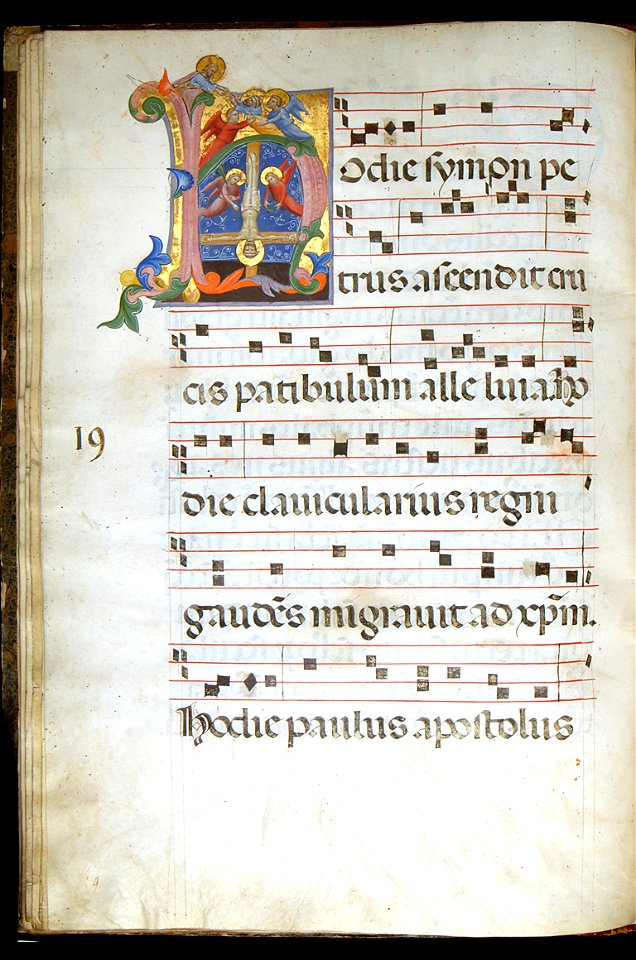 Hodie symon pe
trus ascendit cru
cis patibulum alle luia. Ho
die clavicularius regni
gaudēs migravit ad xp̄m.
19
hodie paulus apostolus